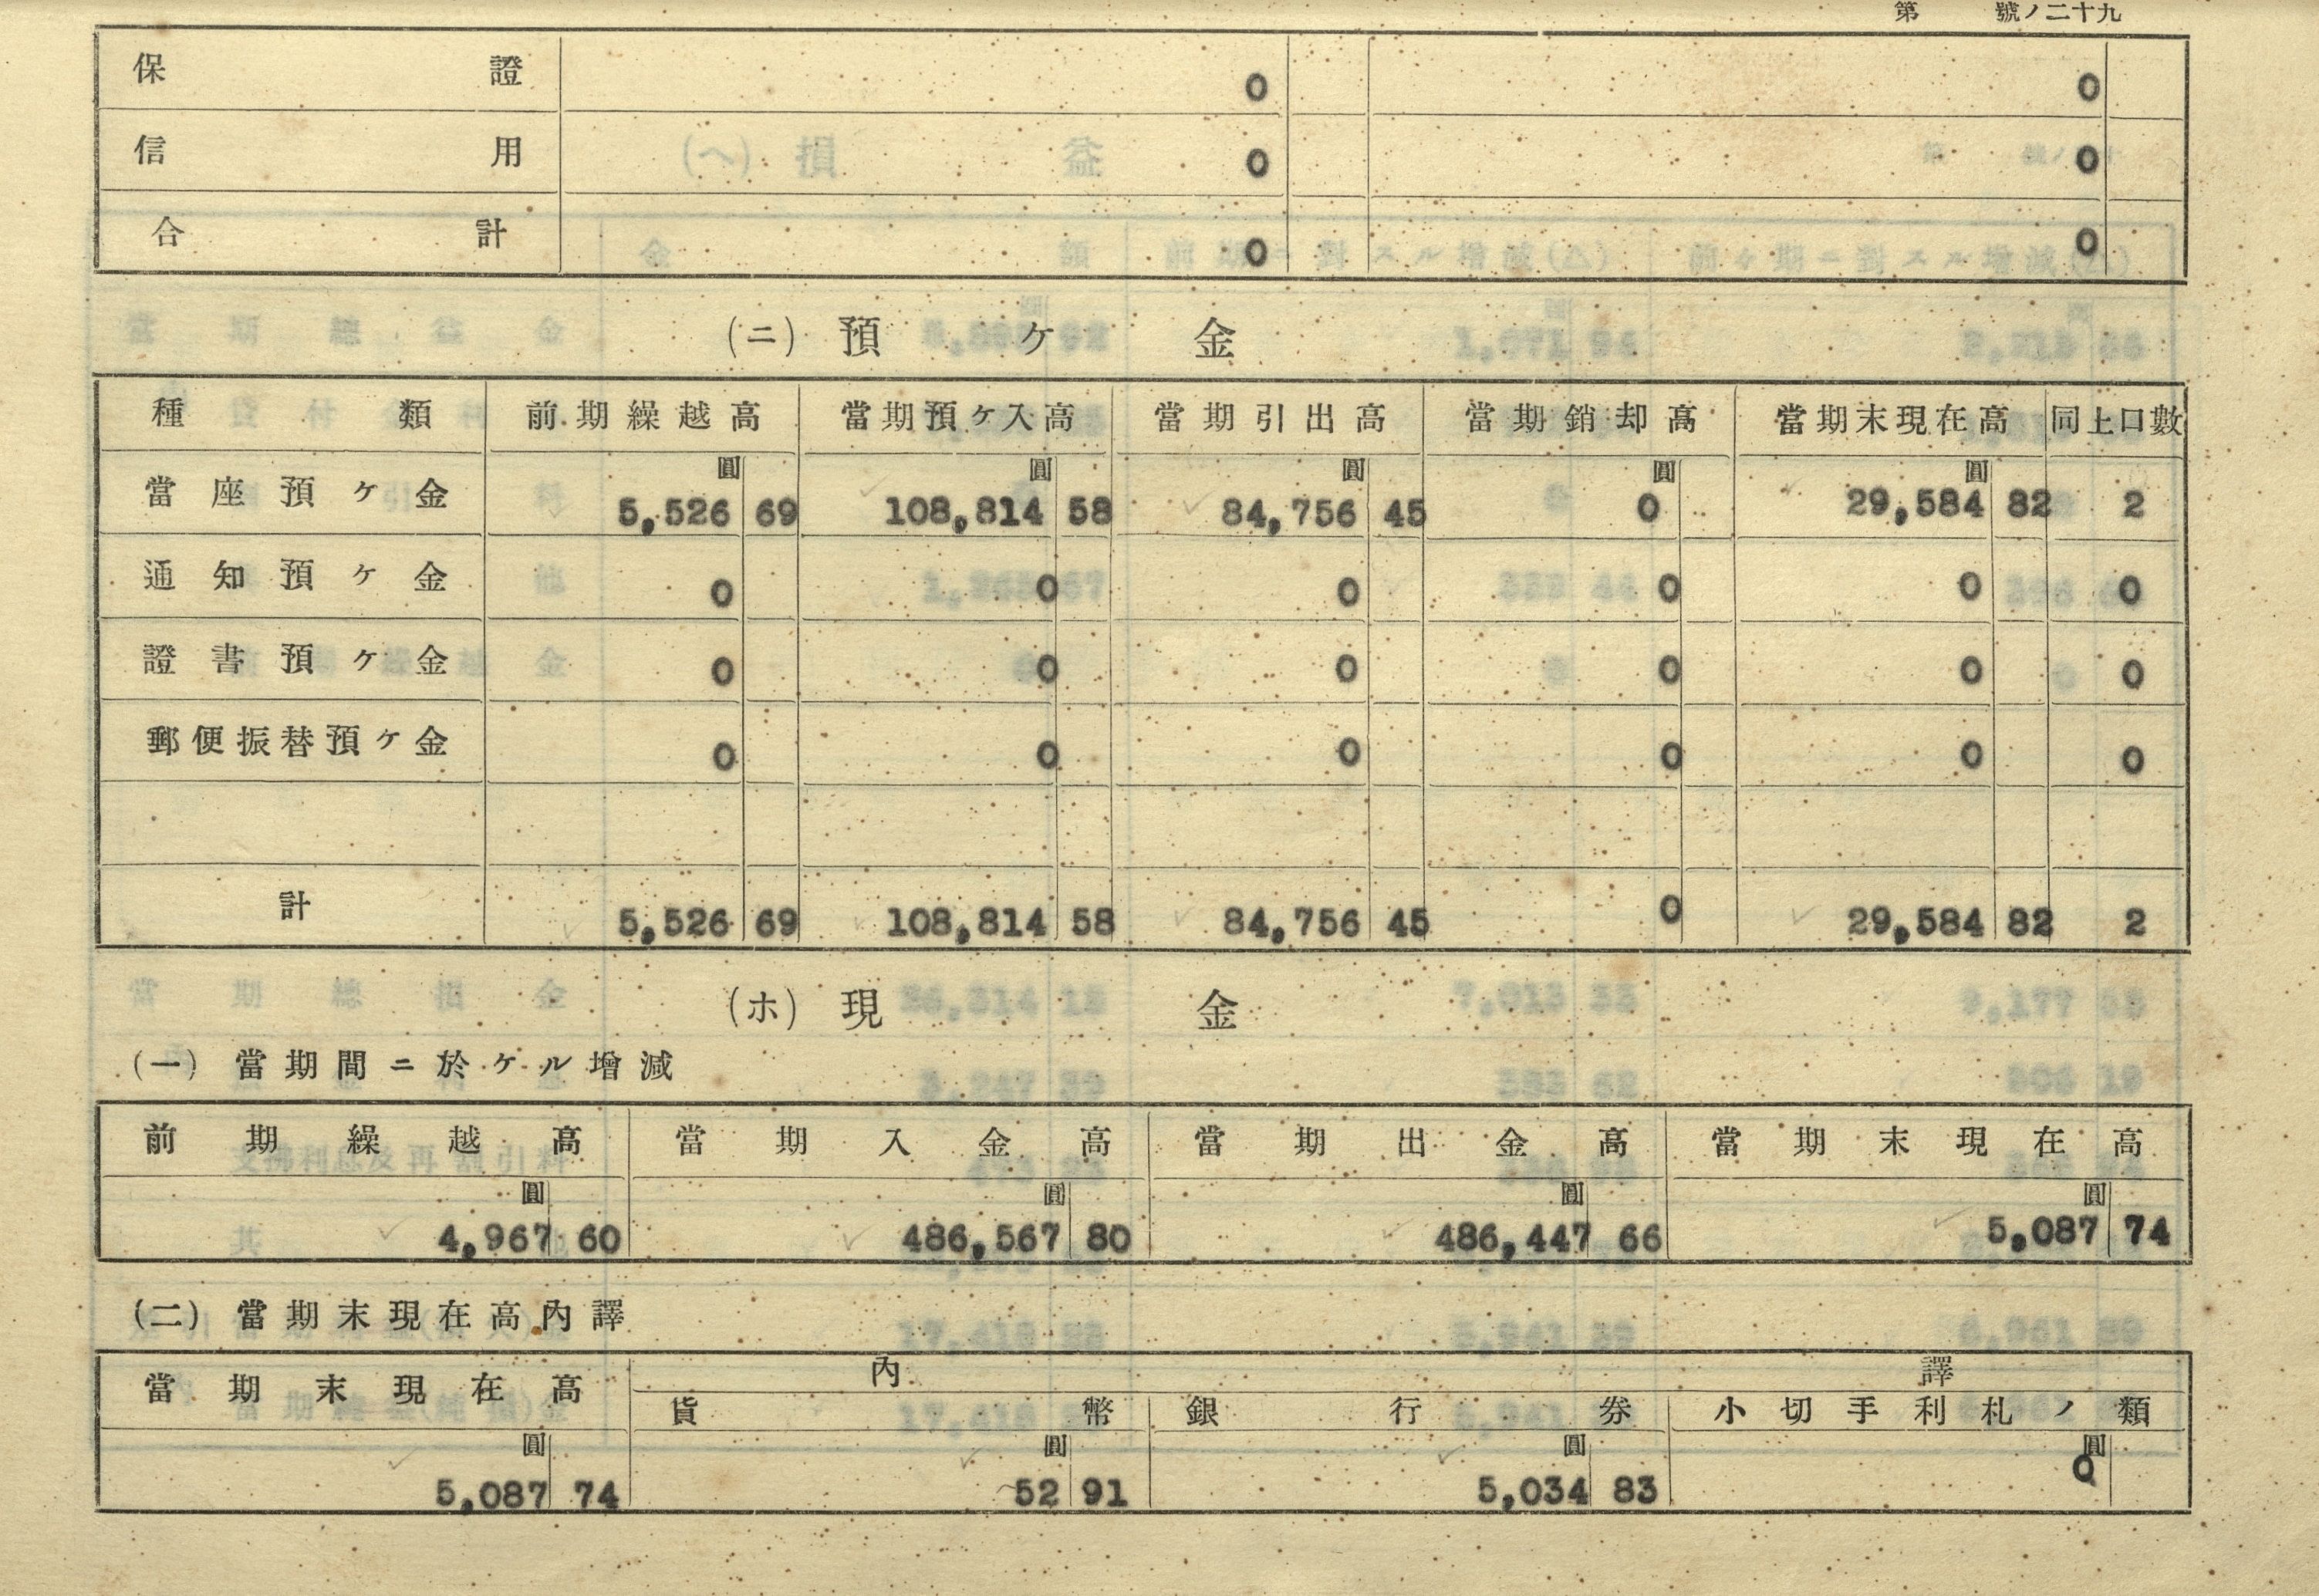 第 號ノ二十九
保證 0 0
信用 0 0
合計 0 0
(ニ) 預ケ金
種類 前期繰越高 當期預ケ入高 當期引出高 當期銷却高 當期末現在高 同上口數
圓 圓 圓 圓 圓
當座預ケ金 5,526 69 108,814 58 84,756 45 0 29,584 82 2
通知預ケ金 0 0 0 0 0 0
證書預ケ金 0 0 0 0 0 0
郵便振替預ケ金 0 0 0 0 0 0
計 5,526 69 108,814 58 84,756 45 0 29,584 82 2
(ホ) 現金
(一) 當期間ニ於ケル增減
前期繰越高 當期入金高 當期出金高 當期末現在高
圓 圓 圓 圓
4,967 60 486,567 80 486,447 66 5,087 74
(二) 當期末現在高內譯
當期末現在高 內譯
貨幣 銀行券 小切手利札ノ類
圓 圓 圓 圓
5,087 74 52 91 5,034 83 0